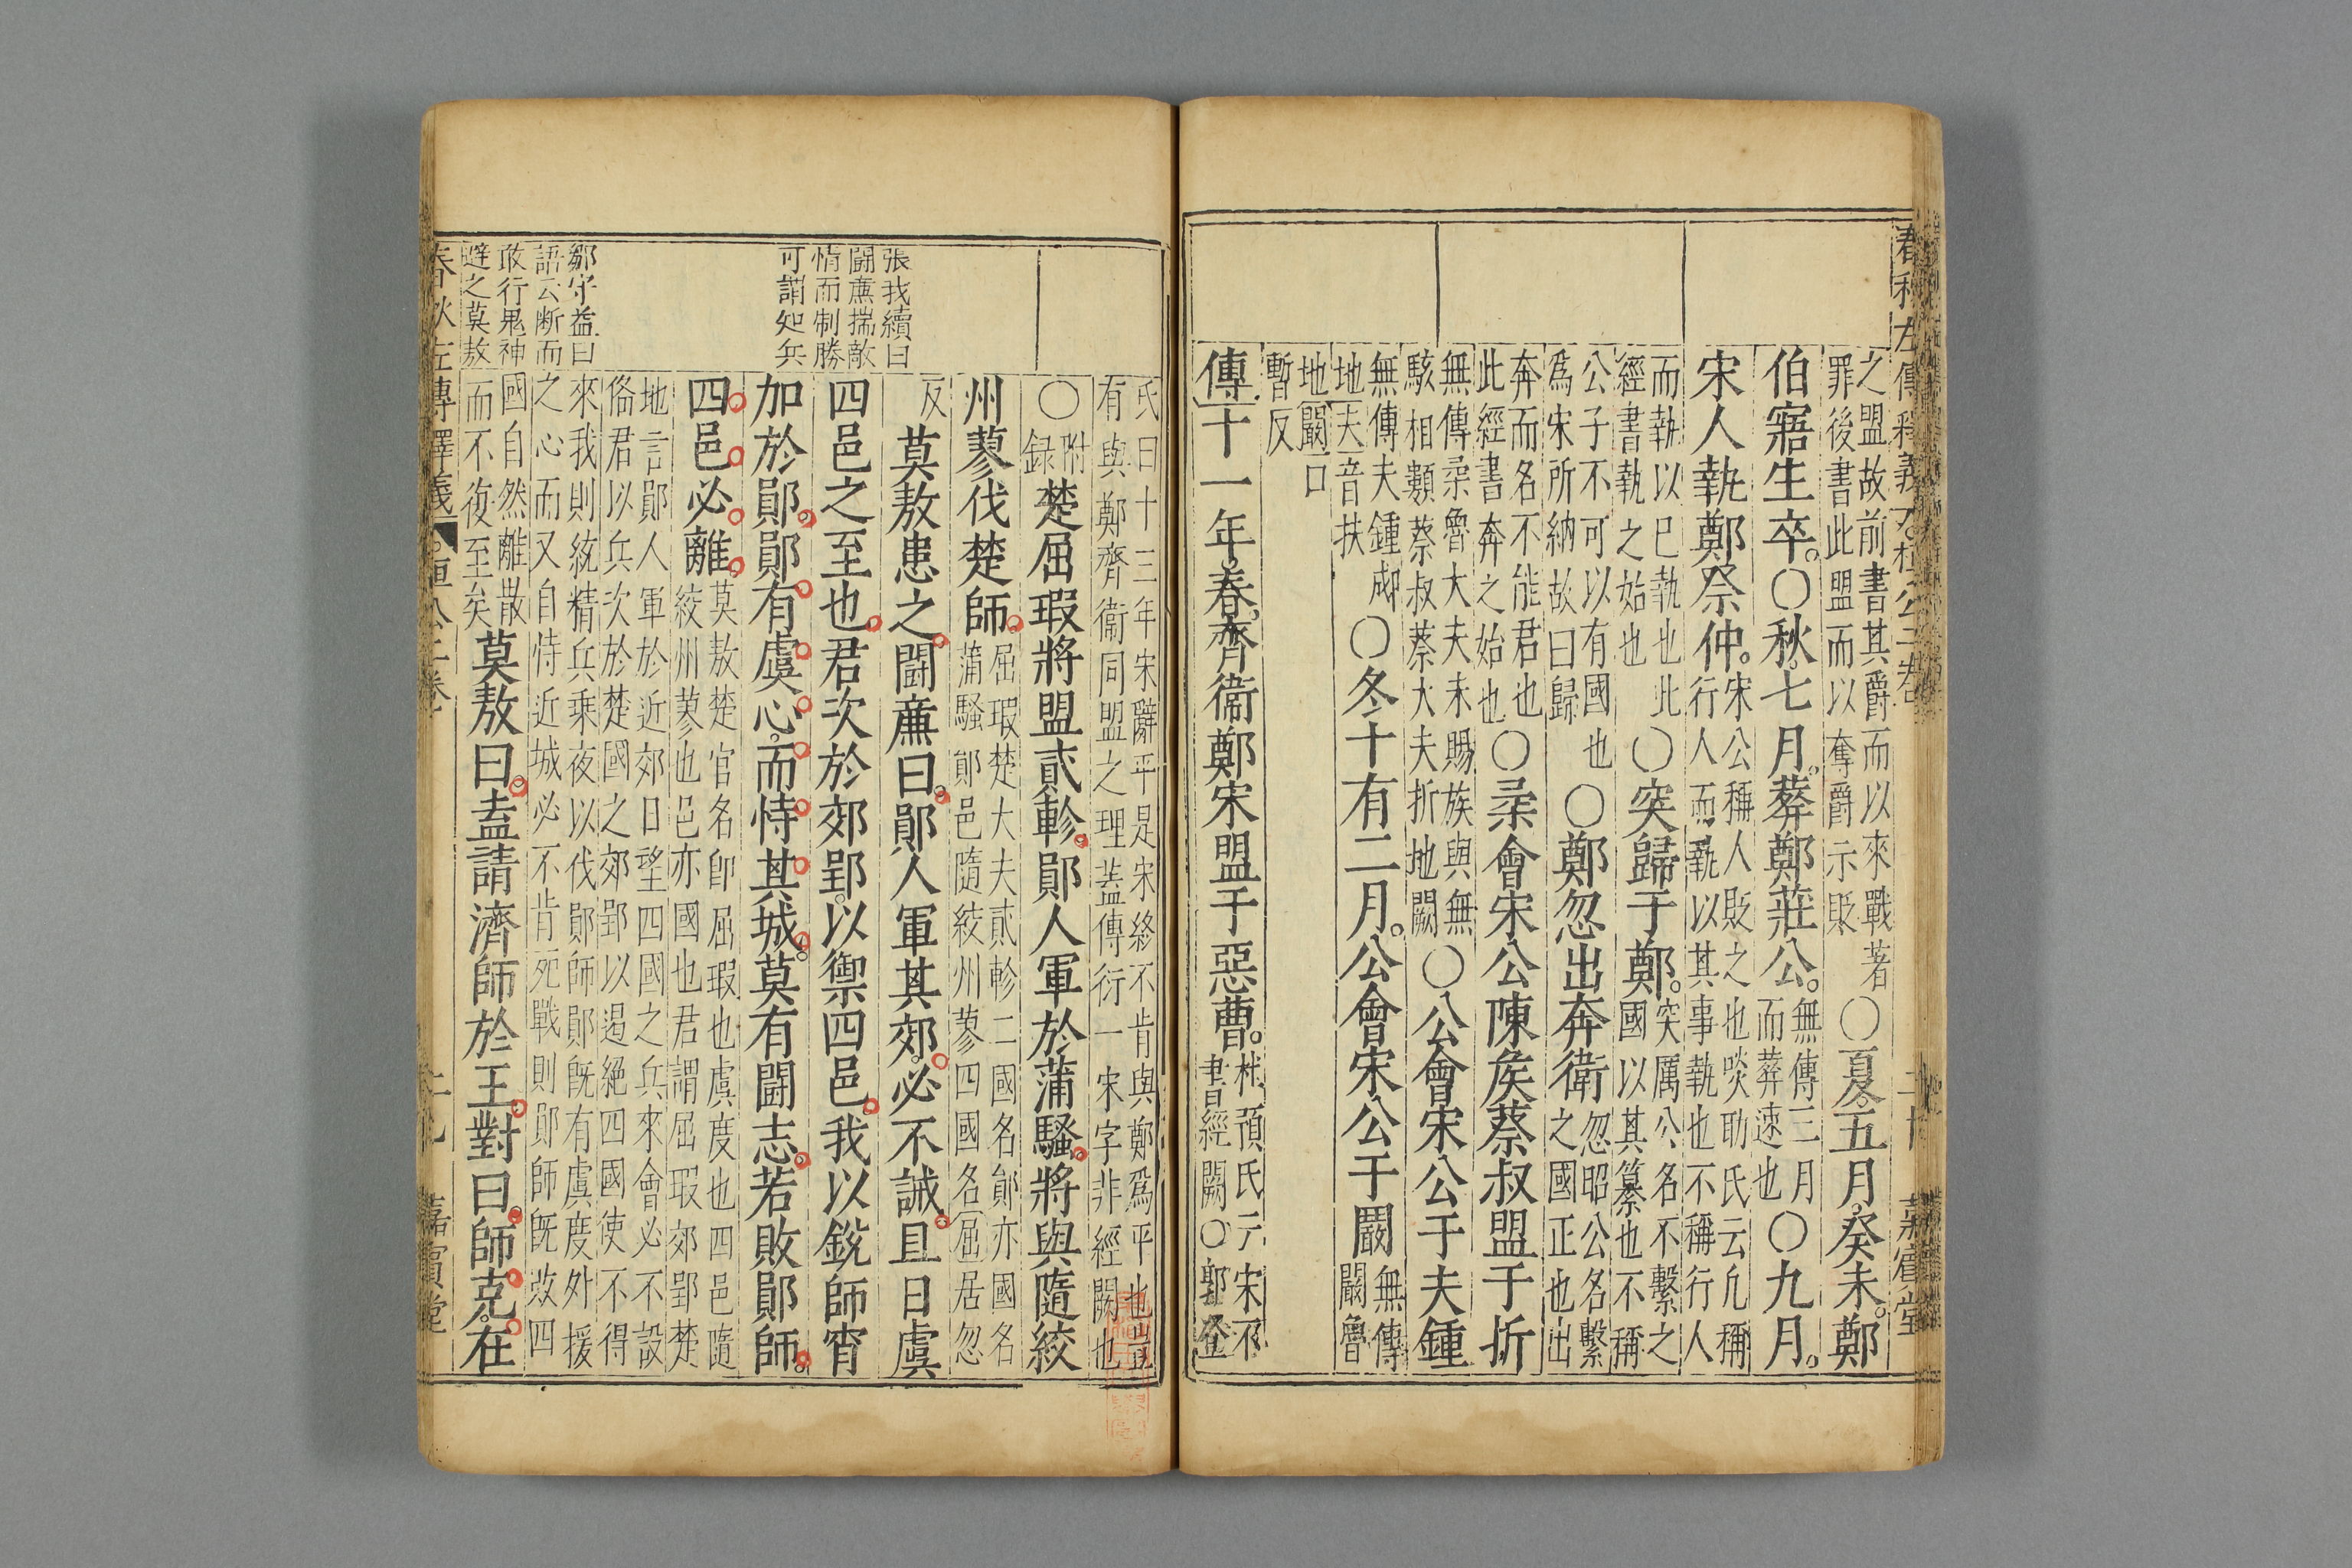 春秋左傳釋義大桓公二卷
嘉賓堂
之盟故前書其爵而以來戰著
罪後書此盟而以奪爵示貶
〇夏五月癸未。鄭
伯寤生卒。〇秋七月。葬鄭莊公。
無傳三月
而葬速也
〇九月。
宋人執鄭祭仲。
宋公稱人貶之也啖助氏云凢稱
行人而執以其事執也不稱行人
而執以巳執也此
經書執之始也
〇突歸于鄭。
突厲公名不繫之
國以其篡也不稱
公子不可以有國也
為宋所納故曰歸
〇鄭忽出奔衛
忽昭公名繫
之國正也出
奔而名不能君也
此經書奔之始也
〇柔會宋公陳矦蔡叔盟于折
無傳柔魯大夫未賜族與無
駭相類蔡叔蔡大夫折地闕
〇公會宋公于夫鍾
無傳夫鍾郕
地夫音扶
〇冬十有二月。公會宋公于闞
無傳
闞魯
地闞口
暫反
傳十一年。春。齊衛鄭宋盟于惡曹。
杜預氏云宋不
書經闕〇郭登
氏曰十三年宋辭平是宋終不肯與鄭為平也豈
有與鄭齊衞同盟之理盖傳衍一宋字非經闕也
〇
附
録
楚屈瑕將盟貳軫。鄖人軍於蒲騷。將與隨絞
州蓼伐楚師。
屈瑕楚大夫貳軫二國名鄖亦國名
蒲騷鄖邑隨絞州蓼四國名屈居忽
反
莫敖患之。闘廉曰。鄖人軍其郊。必不誡。且日虞
四邑之至也。君次於郊郢。以禦四邑。我以銳師宵
加於鄖。鄖有虞心。而恃其城。莫有闘志。若敗鄖師。
四邑必離。
莫敖楚官名卽屈瑕也虞度也四邑隨
絞州蓼也邑亦國也君謂屈瑕郊郢楚
地言鄖人軍於近郊日望四國之兵來會必不設
俻君以兵次於楚國之郊郢以遏絕四國使不得
來我則統精兵乗夜以伐鄖師鄖旣有虞度外援
之心而又自恃近城必不肯死戰則鄖師旣敗四
國自然離散
而不復至矣
莫敖曰。盍請濟師於王。對曰。師克。在
張我續曰
闘廉揣敵
情而制勝
可謂知兵
鄒守益曰
語云断而
敢行鬼神
避之莫敖
春秋左傳釋義
桓公二卷
十九
嘉賓堂